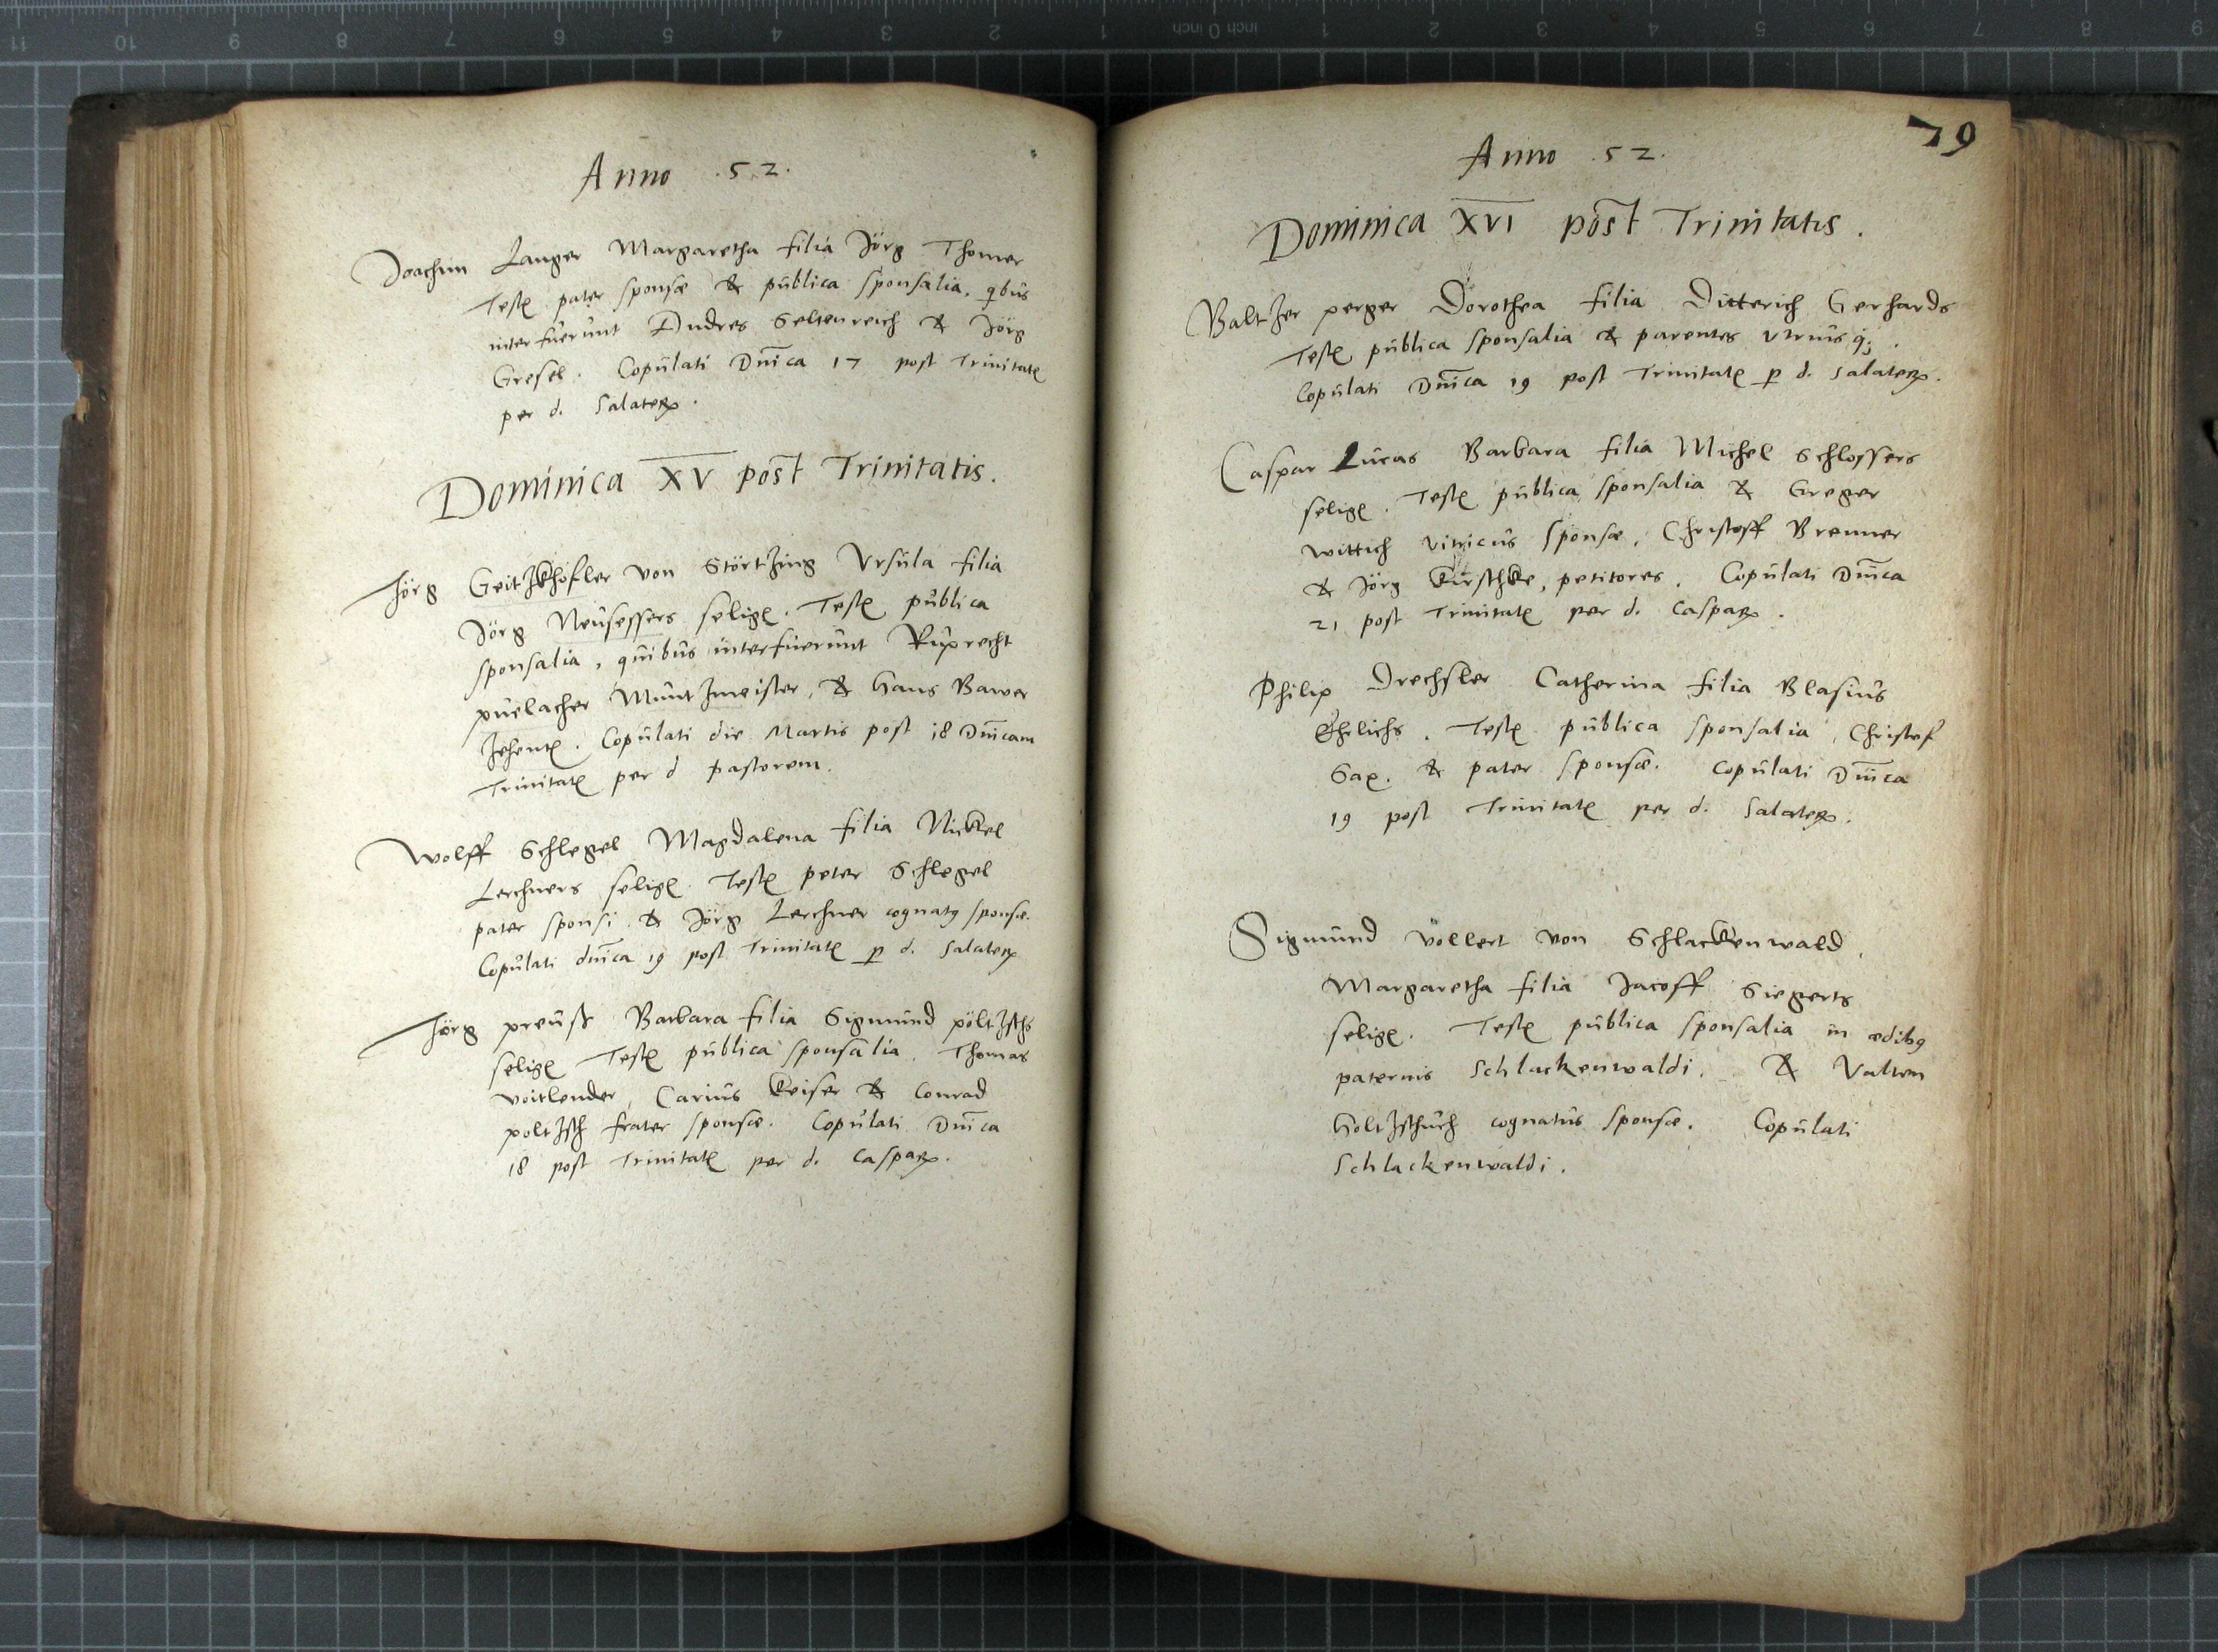 Anno .52.
Joachim Langer Margaretha filia Jörg Thomer
Testes pater sponsæ & publica sponsalia, qbus
interfuerunt Andres Seltenreich & Jörg
Gresel. Copulati Dnica 17 post Trinitatis
per d. Salaterum.
Dominica XV post Trinitatis.
Jörg Geitzkhofler von Störtzing Ursula filia
Jörg Neusessers seliges. Testes publica
sponsalia, quibus interfuerunt Ruprecht
puelacher Muntzmeister, & Hans Bawer
Zehentner. Copulati die Martis post 18 Dnicam
Trinitatis per d pastorem.
Wolff Schlegel Magdalena filia Nickel
Lerchners seliges. Testes peter Schlegel
pater sponsi & Jörg Lerchner cognatus sponsæ.
Copulati dnica 19 post Trinitatis p d. Salaterum
Jörg preuss Barbara filia Sigmund pöltzschs
seliges Testes publica sponsalia. Thomas
Voitlender, Carius Keiser & Conrad
poltzsch frater sponsæ. Copulati Dnica
18 post Trinitatis per d. Casparum.
79
Anno .52.
Dominica XVI post Trinitatis.
Baltzer perger Dorothea filia Ditterich Gerhards
Testes publica sponsalia & parentes utriusq;.
Copulati Dnica 19 post Trinitatis p d. Salaterum.
Caspar Lucas Barbara filia Michel Schlossers
seliges. Testes publica sponsalia & Greger
Wittich vitricus sponsæ, Christoff Brenner
& Jörg Kirschke, petitores. Copulati Dnica
21 post Trinitatis per d. Casparum.
Philip Drechsler Catherina filia Blasius
Ehrlichs. Testes publica sponsalia, Christof
Sax. & pater sponsæ. Copulati Dnica
19 post Trinitatis per d. Salaterum.
Sigmund Völlert von Schlackenwald,
Margaretha filia Jacoff Siegerts
seliges. Testes publica sponsalia in ædibus
paternis Schlackenwaldi. & Valten
Holtzschuch cognatus sponsæ. Copulati
Schlackenwaldi.